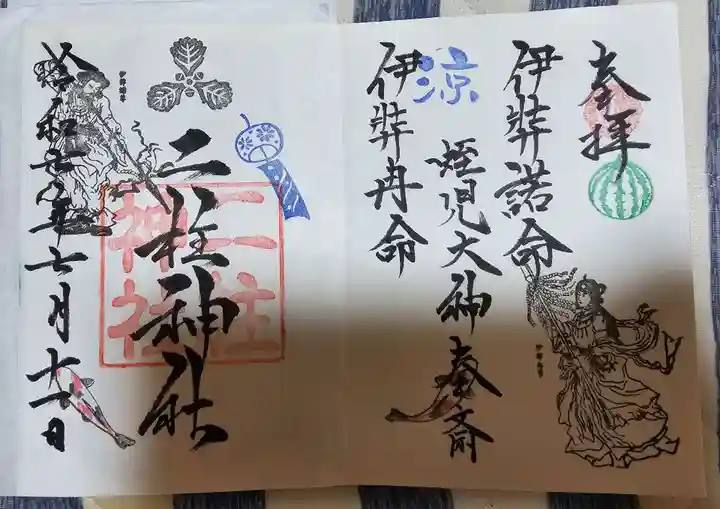 奉拝
伊弉諾命
蛭児大神奉斎
涼
伊弉冉命
二柱神社
二柱
神社
令和七年七月十一日